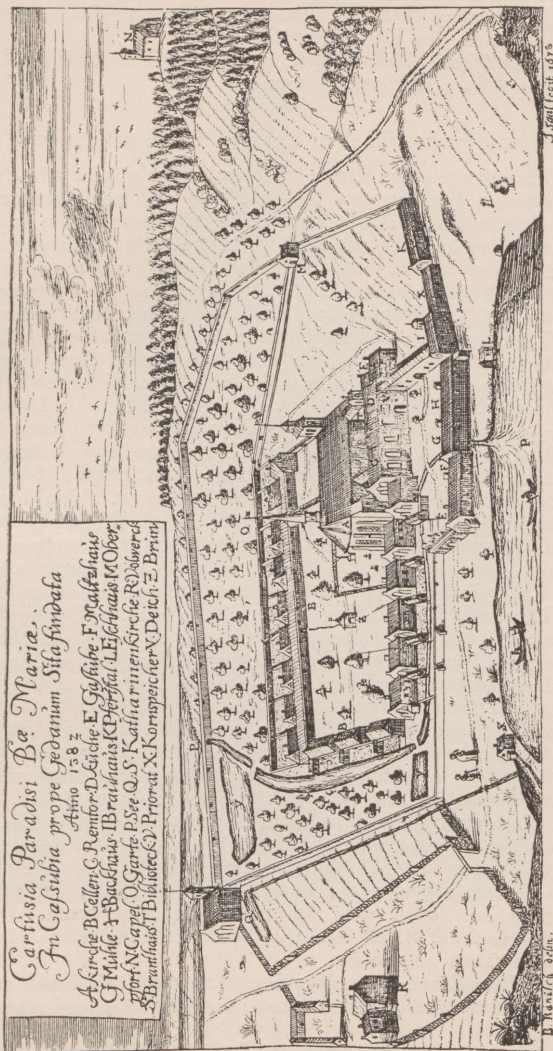 Cartusia Paradisi Bæ Mariæ.
In Cassubia prope Gedanum Sita fundata
Anno 1382
A Kirche B Cellen C Remter D Küche E Gaststube F Maltzhaus
G Mühle H Backhaus I Brauhaus K Pferstal L Eschhaus M Ober
pfort N Capel O Garte P See Q S. Katharinen kirche R Volwerck
S Brunhaus T Biblioteck V Priorat X Kornspeicher Y Deich Z Brun
P. Ranisch delin.
fecit 1673